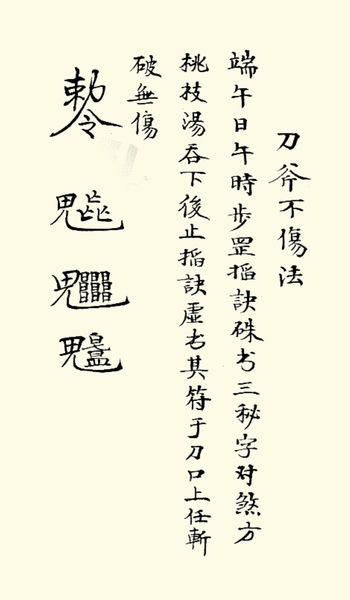 刀斧不傷法
端午日午時步罡掐訣硃书三秘字对煞方
桃枝湯吞下後止掐訣虛书其符于刀口上任斬
破無傷